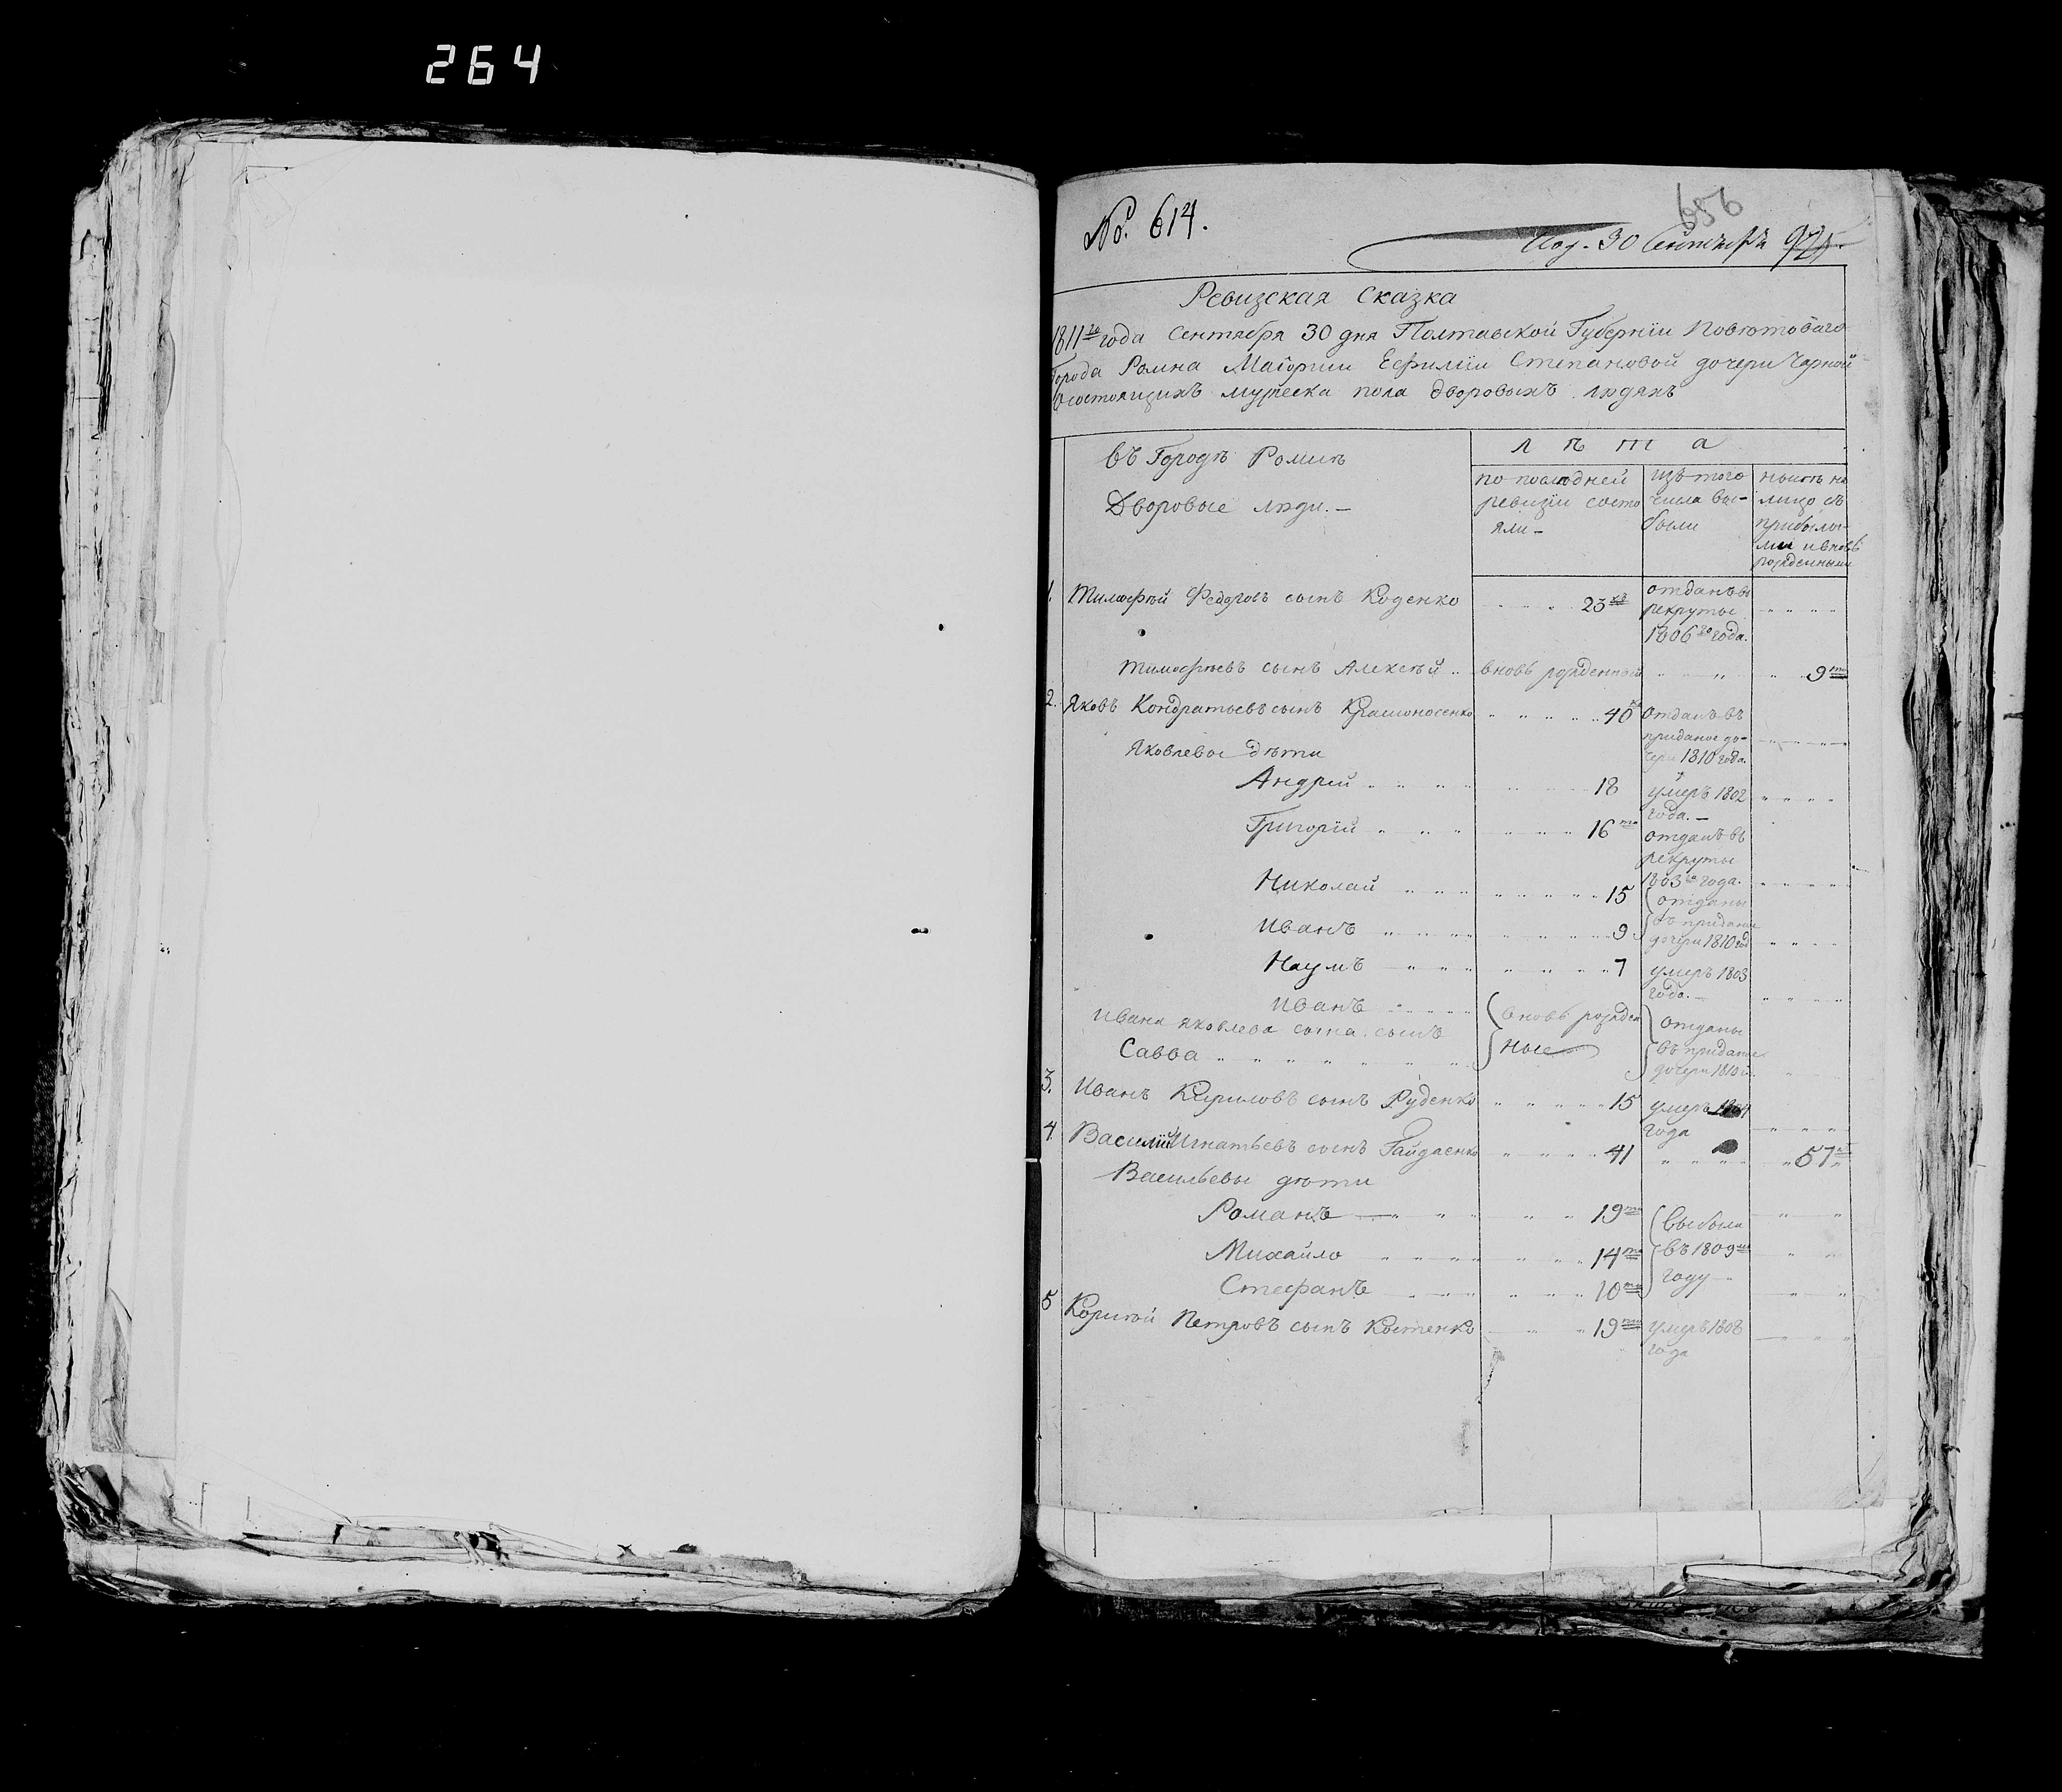 264
No. 614.
656
Под. 30 Сентября
Ревизская Сказка
1811го года Сентября 30 дня Полтавской Губернїи Повѣтоваго
Города Ромна Маїорши Ефимїи Степановой дочери Чарной
О состоящихъ мужеска пола дворовыхъ людяхъ
Въ Городѣ Ромнѣ
Дворовые люди. —
лѣта
по послѣдней ревизїи состояли —
изъ того числа выбыли
нынѣ на лицо съ прибылыми и вновь рожденными
1. Тимофѣй Федоровъ сынъ Коденко 23 отданъ въ рекруты 1806го года.
Тимофѣевъ сынъ Алексѣй вновь рожденный 9ть
2. Яковъ Кондратьевъ сынъ Красноносенко 40 отданъ въ приданое дочери 1810 года.
Яковлевы дѣти
Андрей 18 умеръ 1802 года. —
Григорїй 16ть отданъ въ рекруты 1803го года.
Николай 15
Иванъ 9
отданы въ приданое дочери 1810 год
Наумъ 7 умеръ 1803 года. —
Иванъ
Ивана Яковлева сына сынъ
Савва
вновь рожденные
отданы въ приданое дочери 1810 г.
3. Иванъ Кириловъ сынъ Руденко 15 умеръ года
4. Василїй Игнатьевъ сынъ Гайдаенко 41 51
Васильевы дѣти
Романъ 19ть
Михайло 14ть
Стефанъ 10ть
выбыли въ 1809м году
5 Корнѣй Петровъ сынъ Костенко 19ть умеръ 1808 года